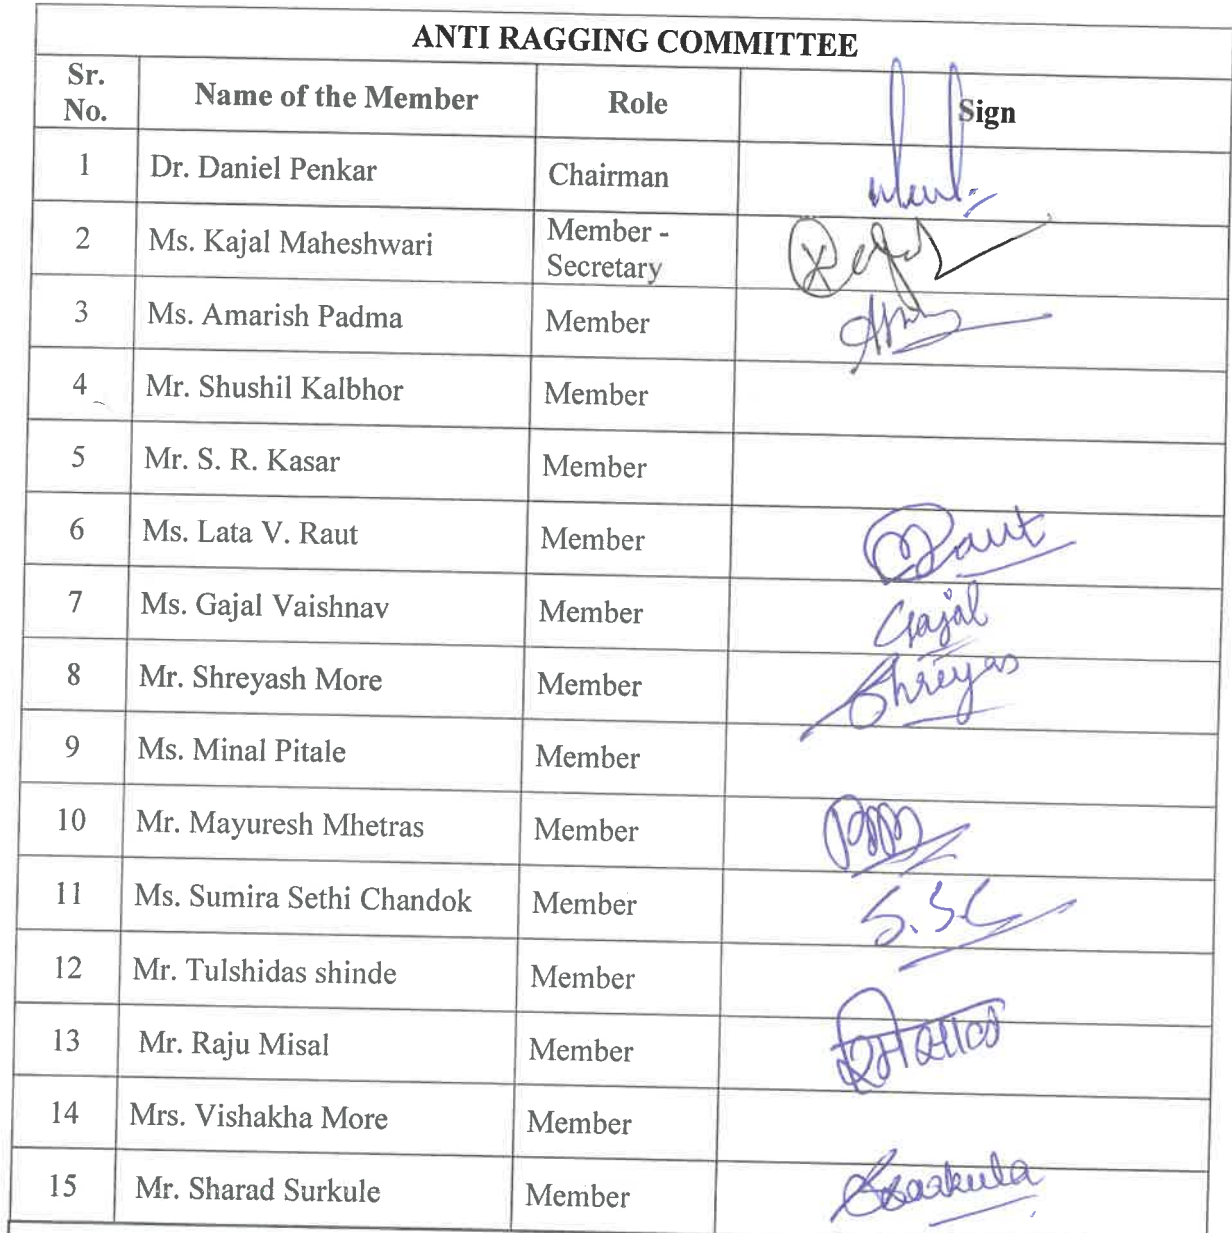 ANTI RAGGING COMMITTEE
Sr. No. Name of the Member Role Sign
1 Dr. Daniel Penkar Chairman
2 Ms. Kajal Maheshwari Member - Secretary
3 Ms. Amarish Padma Member
4 Mr. Shushil Kalbhor Member
5 Mr. S. R. Kasar Member
6 Ms. Lata V. Raut Member Raut
7 Ms. Gajal Vaishnav Member Gajal
8 Mr. Shreyash More Member Shreyas
9 Ms. Minal Pitale Member
10 Mr. Mayuresh Mhetras Member
11 Ms. Sumira Sethi Chandok Member S.SC
12 Mr. Tulshidas shinde Member
13 Mr. Raju Misal Member
14 Mrs. Vishakha More Member
15 Mr. Sharad Surkule Member